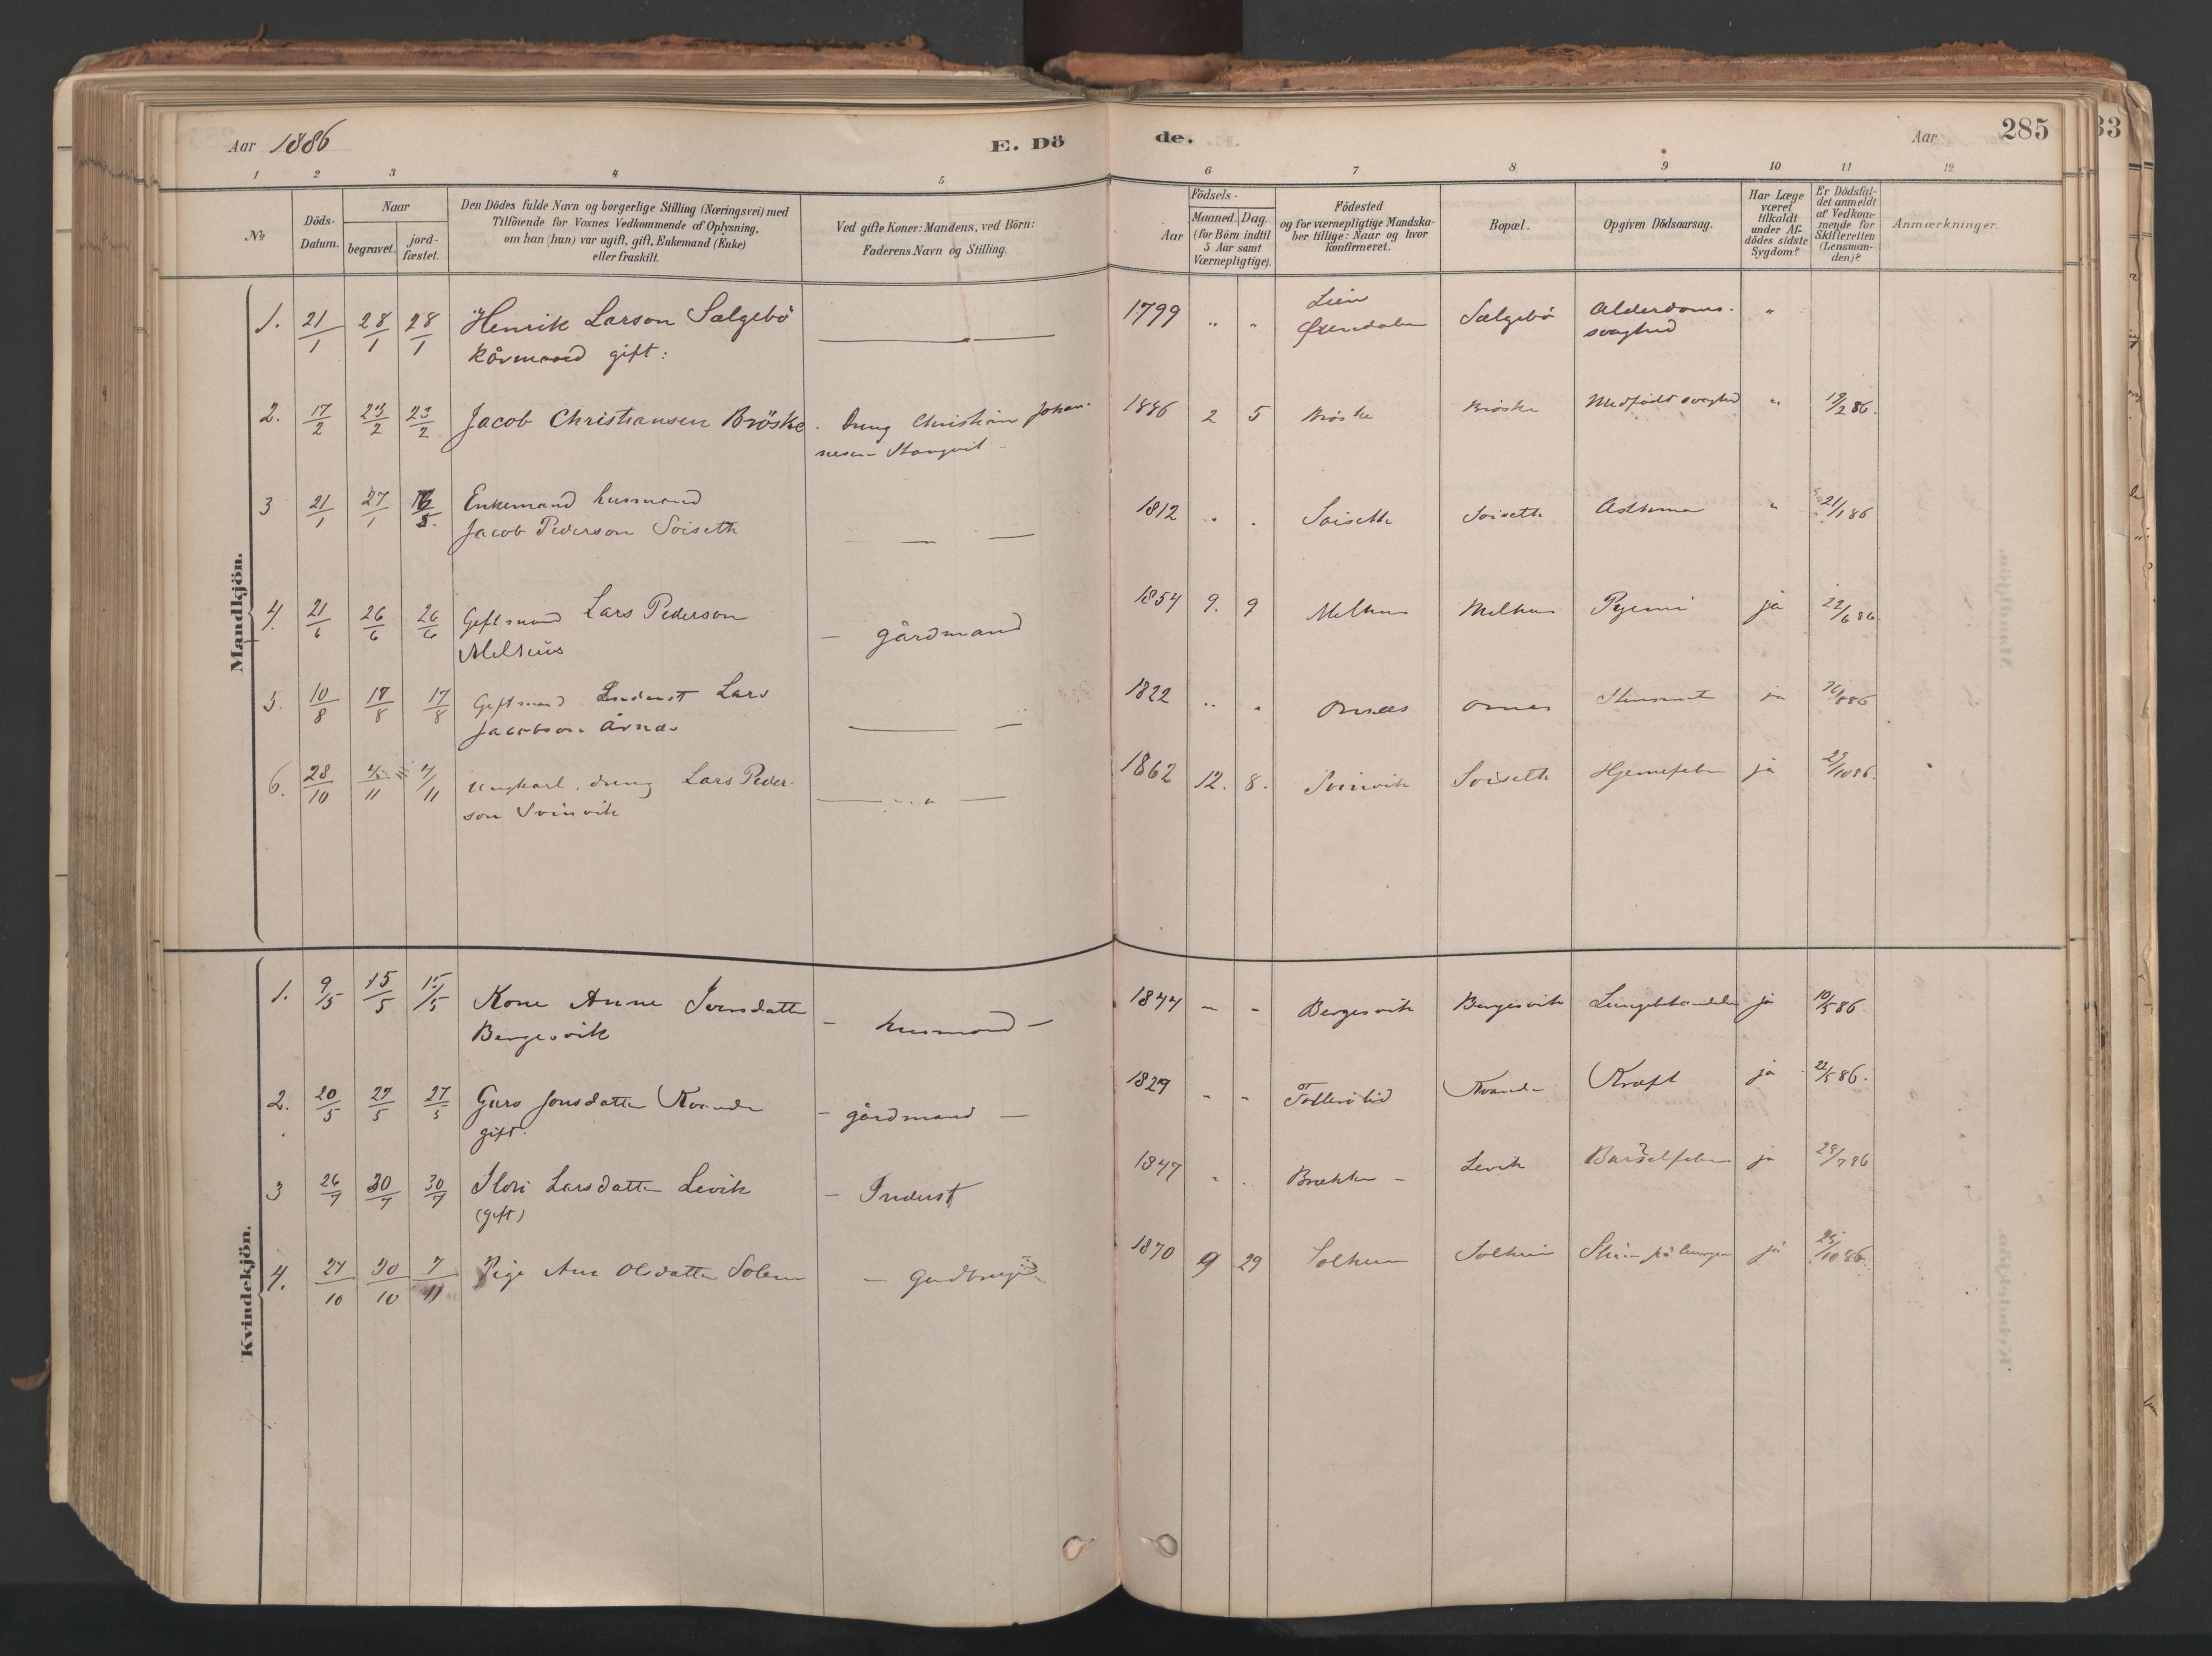 Aar 1886
E. Dö
de.
Aar
285
33
1 2 3 4 5 6 7 8 9 10 11 12
No
Döds-
Datum.
Naar
begravet.
jord-
fæstet.
Den Dödes fulde Navn og borgerlige Stilling (Næringsvei) med
Tilföiende for Voxnes Vedkommende af Oplysning,
om han (hun) var ugift, gift, Enkemand (Enke)
eller fraskilt.
Ved gifte Koner: Mandens, ved Börn:
Faderens Navn og Stilling.
Födsels-
Aar
Maaned. Dag.
(for Börn indtil
5 Aar samt
Værnepligtige).
Födested
og for værnepligtige Mandska-
ber tillige: Naar og hvor
konfirmeret.
Bopæl.
Opgiven Dödsaarsag.
Har Læge
været
tilkaldt
under Af-
dödes sidste
Sygdom?
Er Dödsfal-
det anmeldt
af Vedkom-
mende for
Skifteretten
(Lensman-
den)?
Anmærkninger.
Mandkjön.
1. 21/1 28/1 28/1 Henrik Larson Sælgebö 1799 " " Lien Sælgebö Alderdoms-
Kårmand gift: Øxendalen svaghed "
2. 17/2 23/2 23/2 Jacob Christiansen Bröske. Dreng Christian Johan- 1886 2 5 Bröske Bröske Medfödt svaghed " 19/2 86.
nesen Stangvik
3 21/1 27/1 Enkemand husmand 1812 . . Soiseth Soiseth Asthma " 21/1 86
Jacob Pederson Soiseth
4. 21/6 26/6 26/6 Giftmand Lars Pederson - gårdmand 1854 9. 9 Melhus Melhus Pyemi ja 22/6 86
Melhus
5. 10/8 17/8 17/8 Giftmand Inderst Lars 1822 " " Ornæs Ornes ja
Jacobson Årnæs
6. 28/10 4/11 4/11 Ungkarl, dreng Lars Peder- 1862 12. 8. Svinvik Soiseth Hjernefeber ja 29/10 86.
son Svinvik
Kvindekjön.
1. 9/5 15/5 15/5 Kone Anne Iversdatter - husmand - 1844 - - Bergesvik Bergesvik ja 10/5 86
Bergesvik
2. 20/5 27/5 27/5 Guro Jonsdatter Kvande - gårdmand - 1829 - - Kvande Kræft ja 22/5 86.
gift.
3 26/7 30/7 30/7 Larsdatter Levik - Inderst 1847 Brækken - Levik Barselfeber ja 28/7 86
(gift)
4. 27/10 30/10 7/11 Pige Ane Olsdatter Solem - 1870 9 29 Solheim Solheim ja 10 86